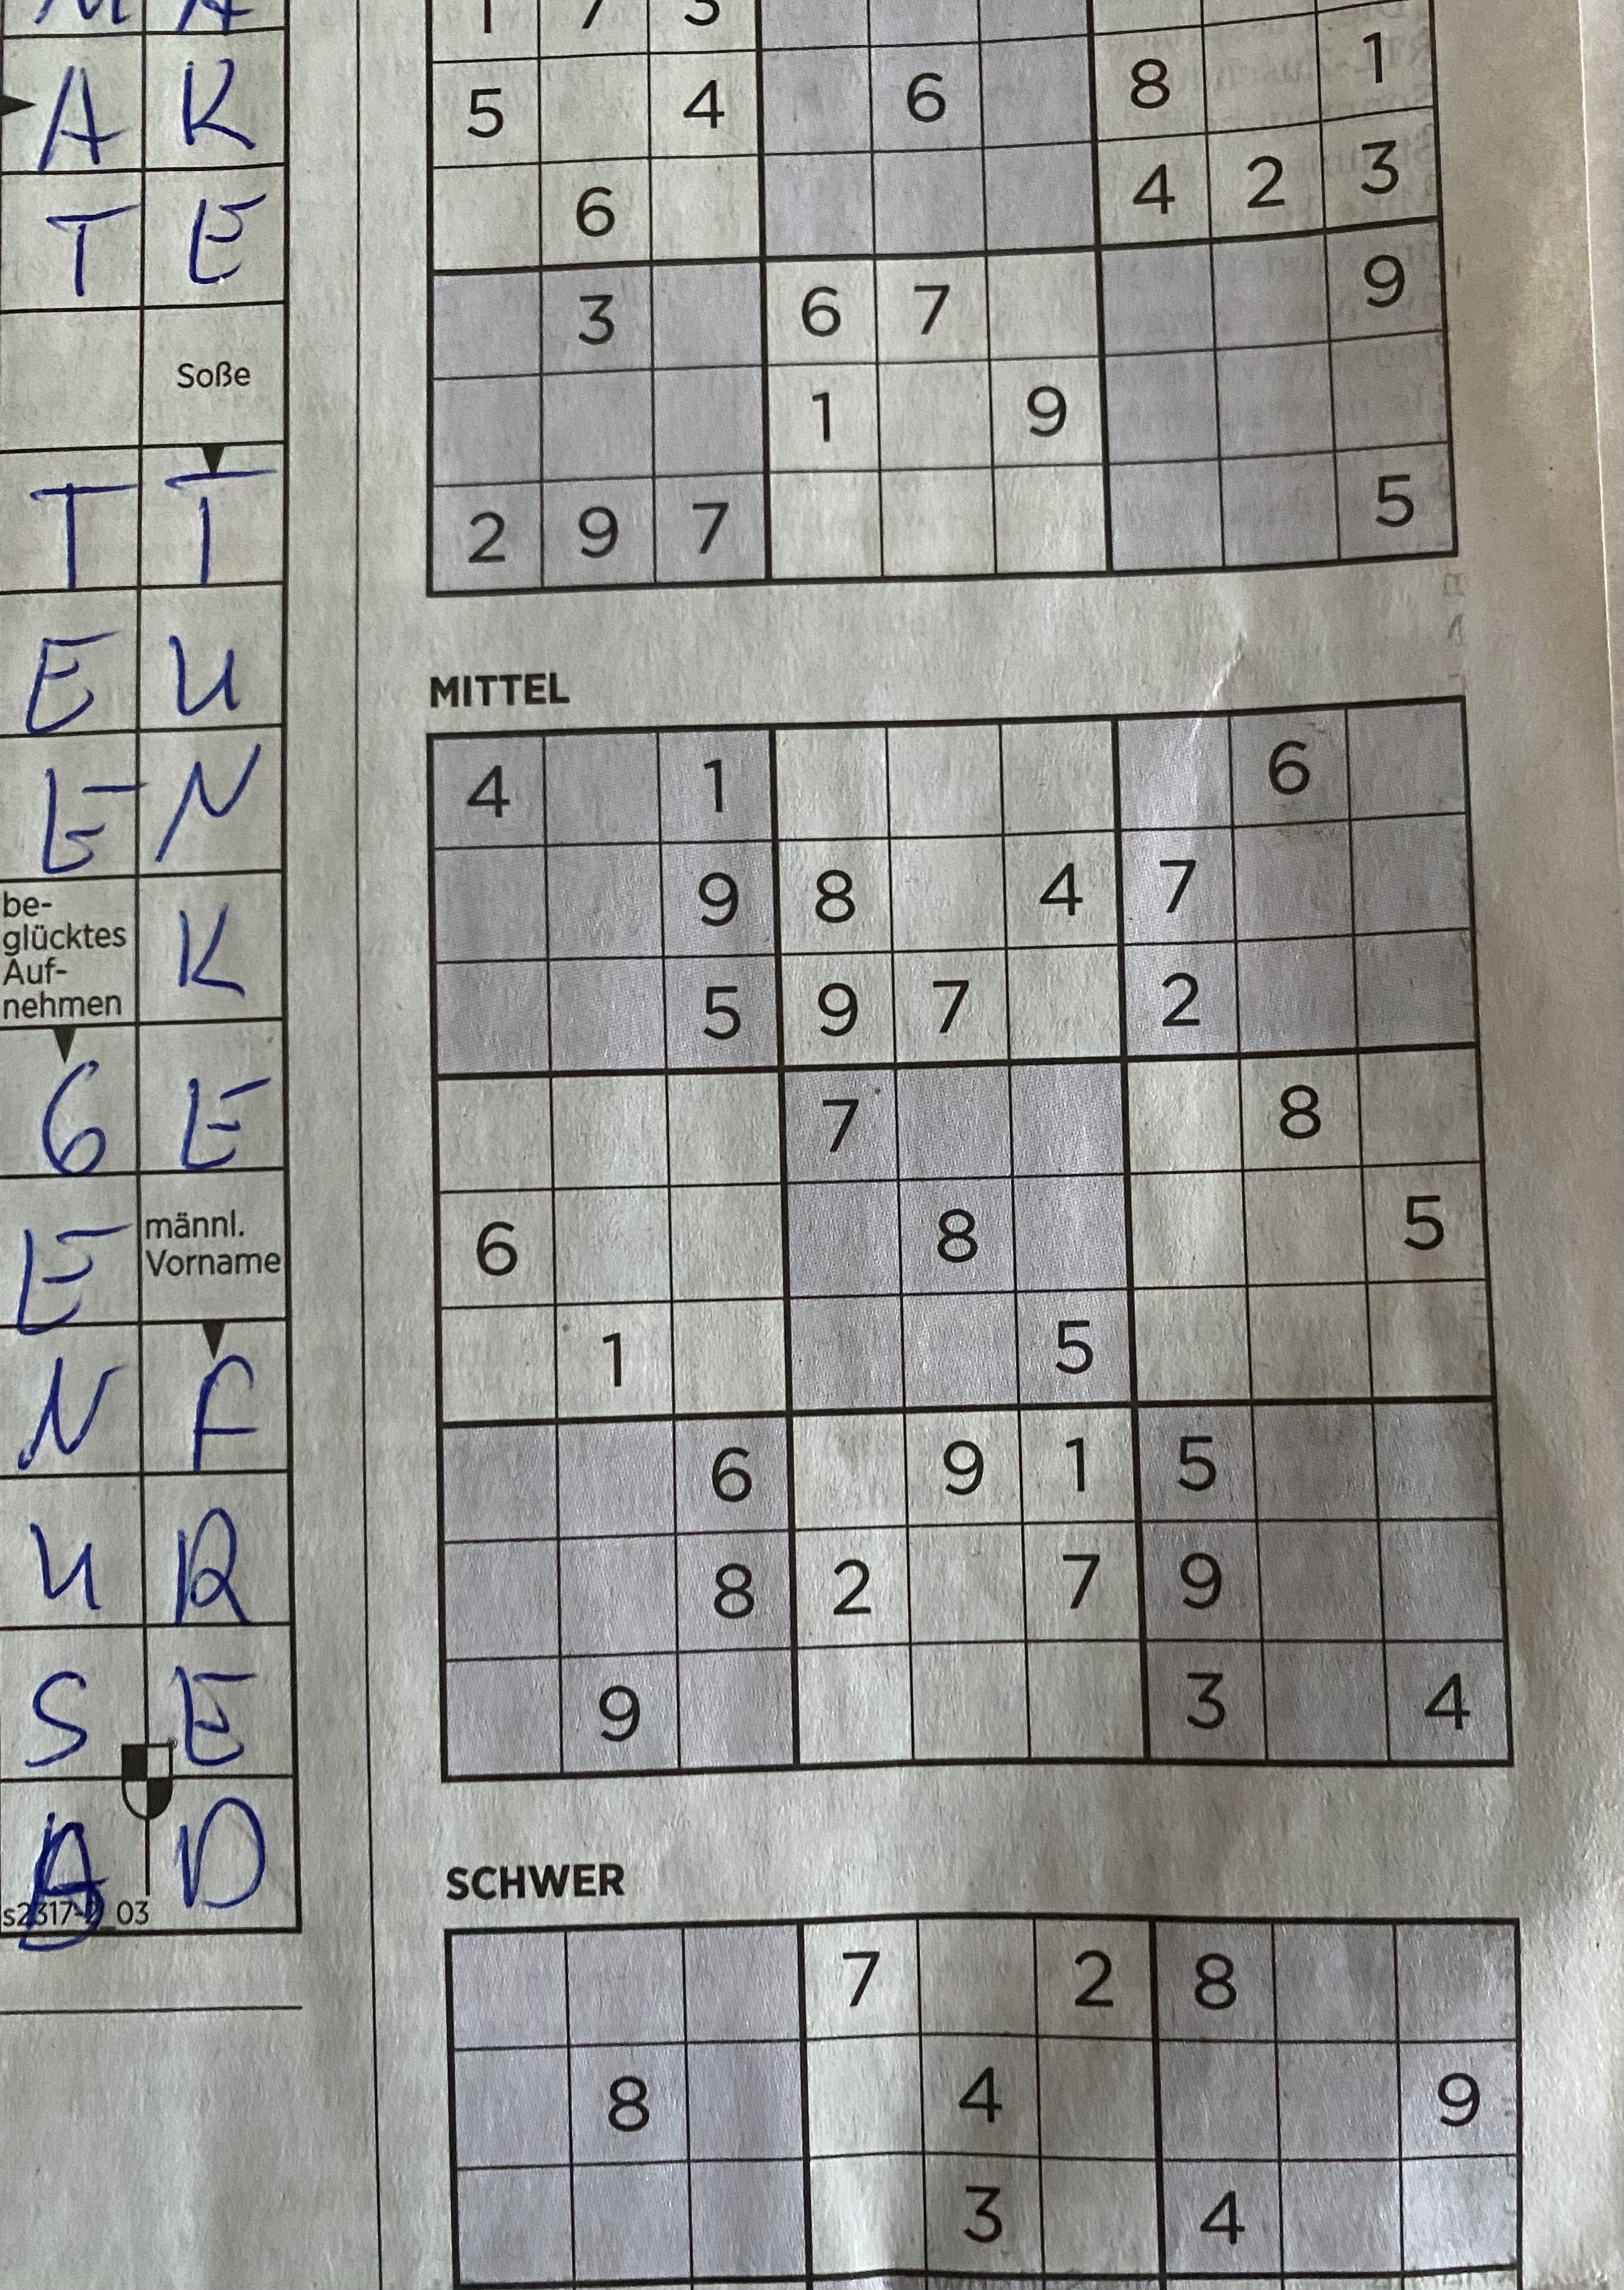 M A
A K
T E
Soße
T T
E U
E N
be-
glücktes
Auf-
nehmen
K
G E
E
männl.
Vorname
N F
U R
S E
A D
s2317-2_03
1 7 3
5 4 6 8 1
6 4 2 3
3 6 7 9
1 9
2 9 7 5
MITTEL
4 1 6
9 8 4 7
5 9 7 2
7 8
6 8 5
1 5
6 9 1 5
8 2 7 9
9 3 4
SCHWER
7 2 8
8 4 9
3 4